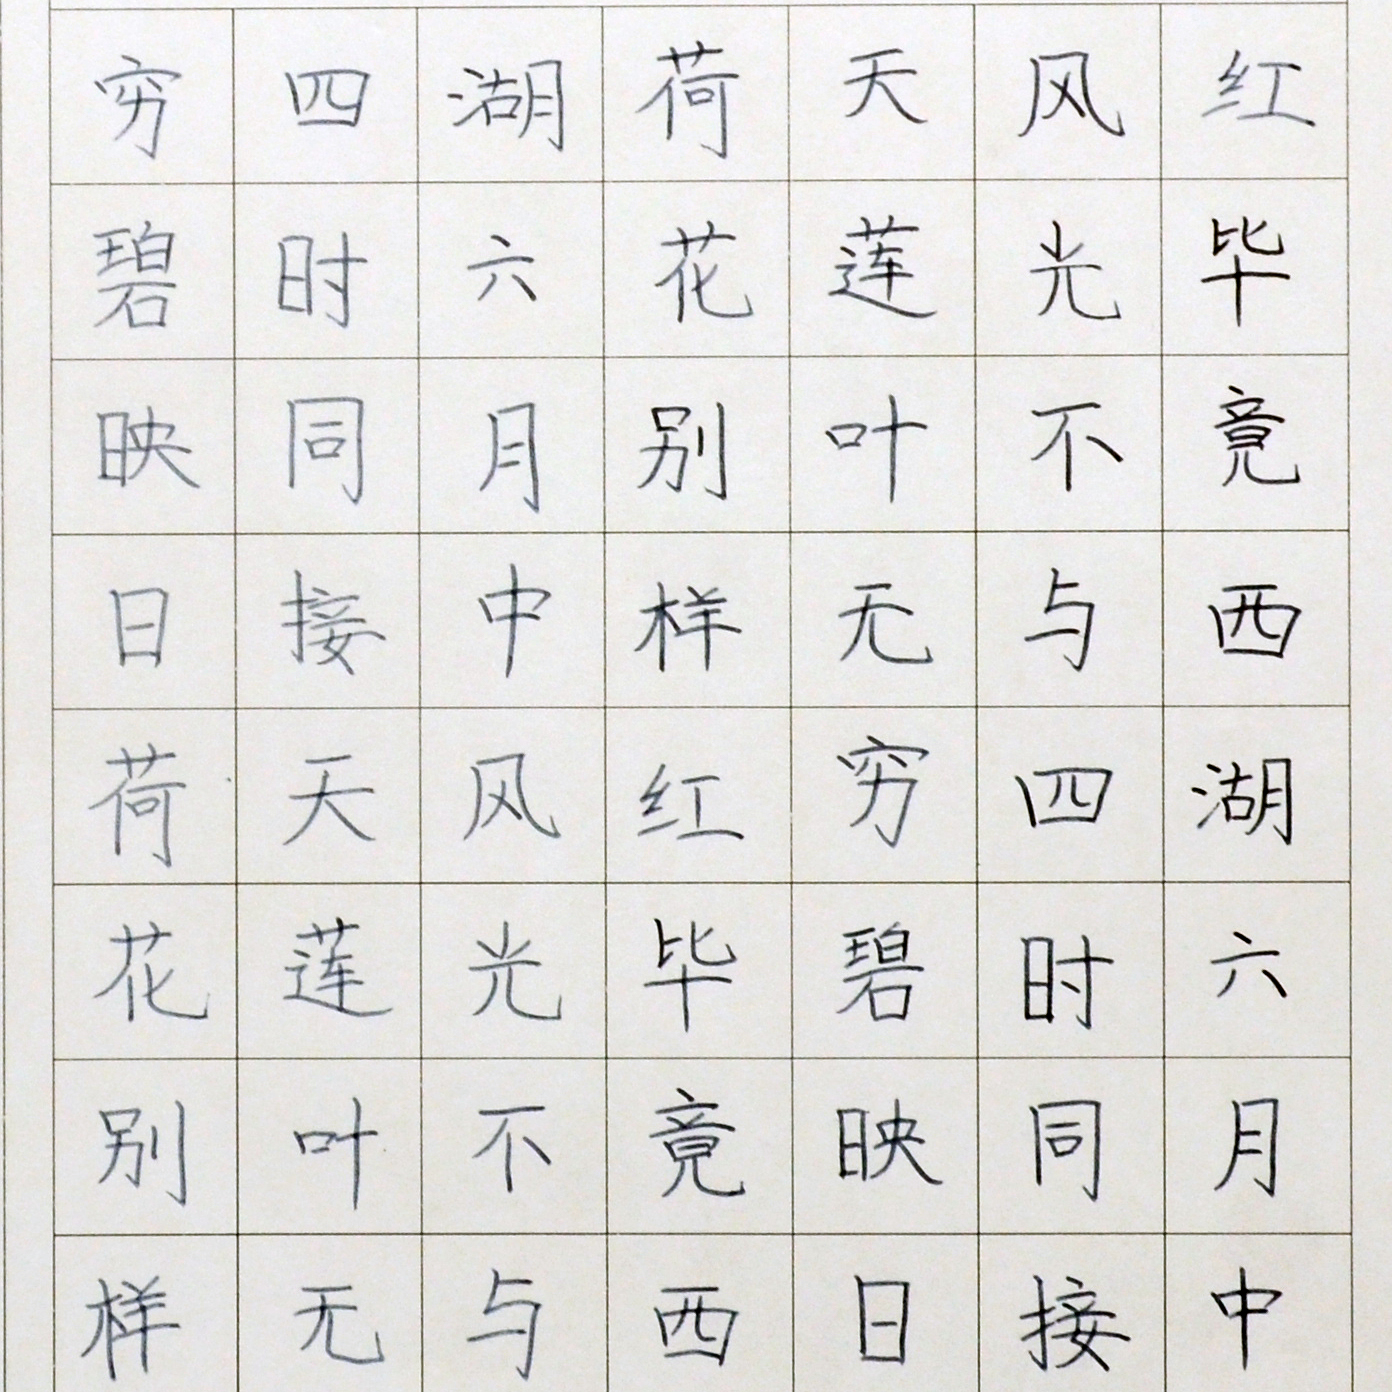 红毕竟西湖六月中
风光不与四时同接
天莲叶无穷碧映日
荷花别样红毕竟西
湖六月中风光不与
四时同接天莲叶无
穷碧映日荷花别样